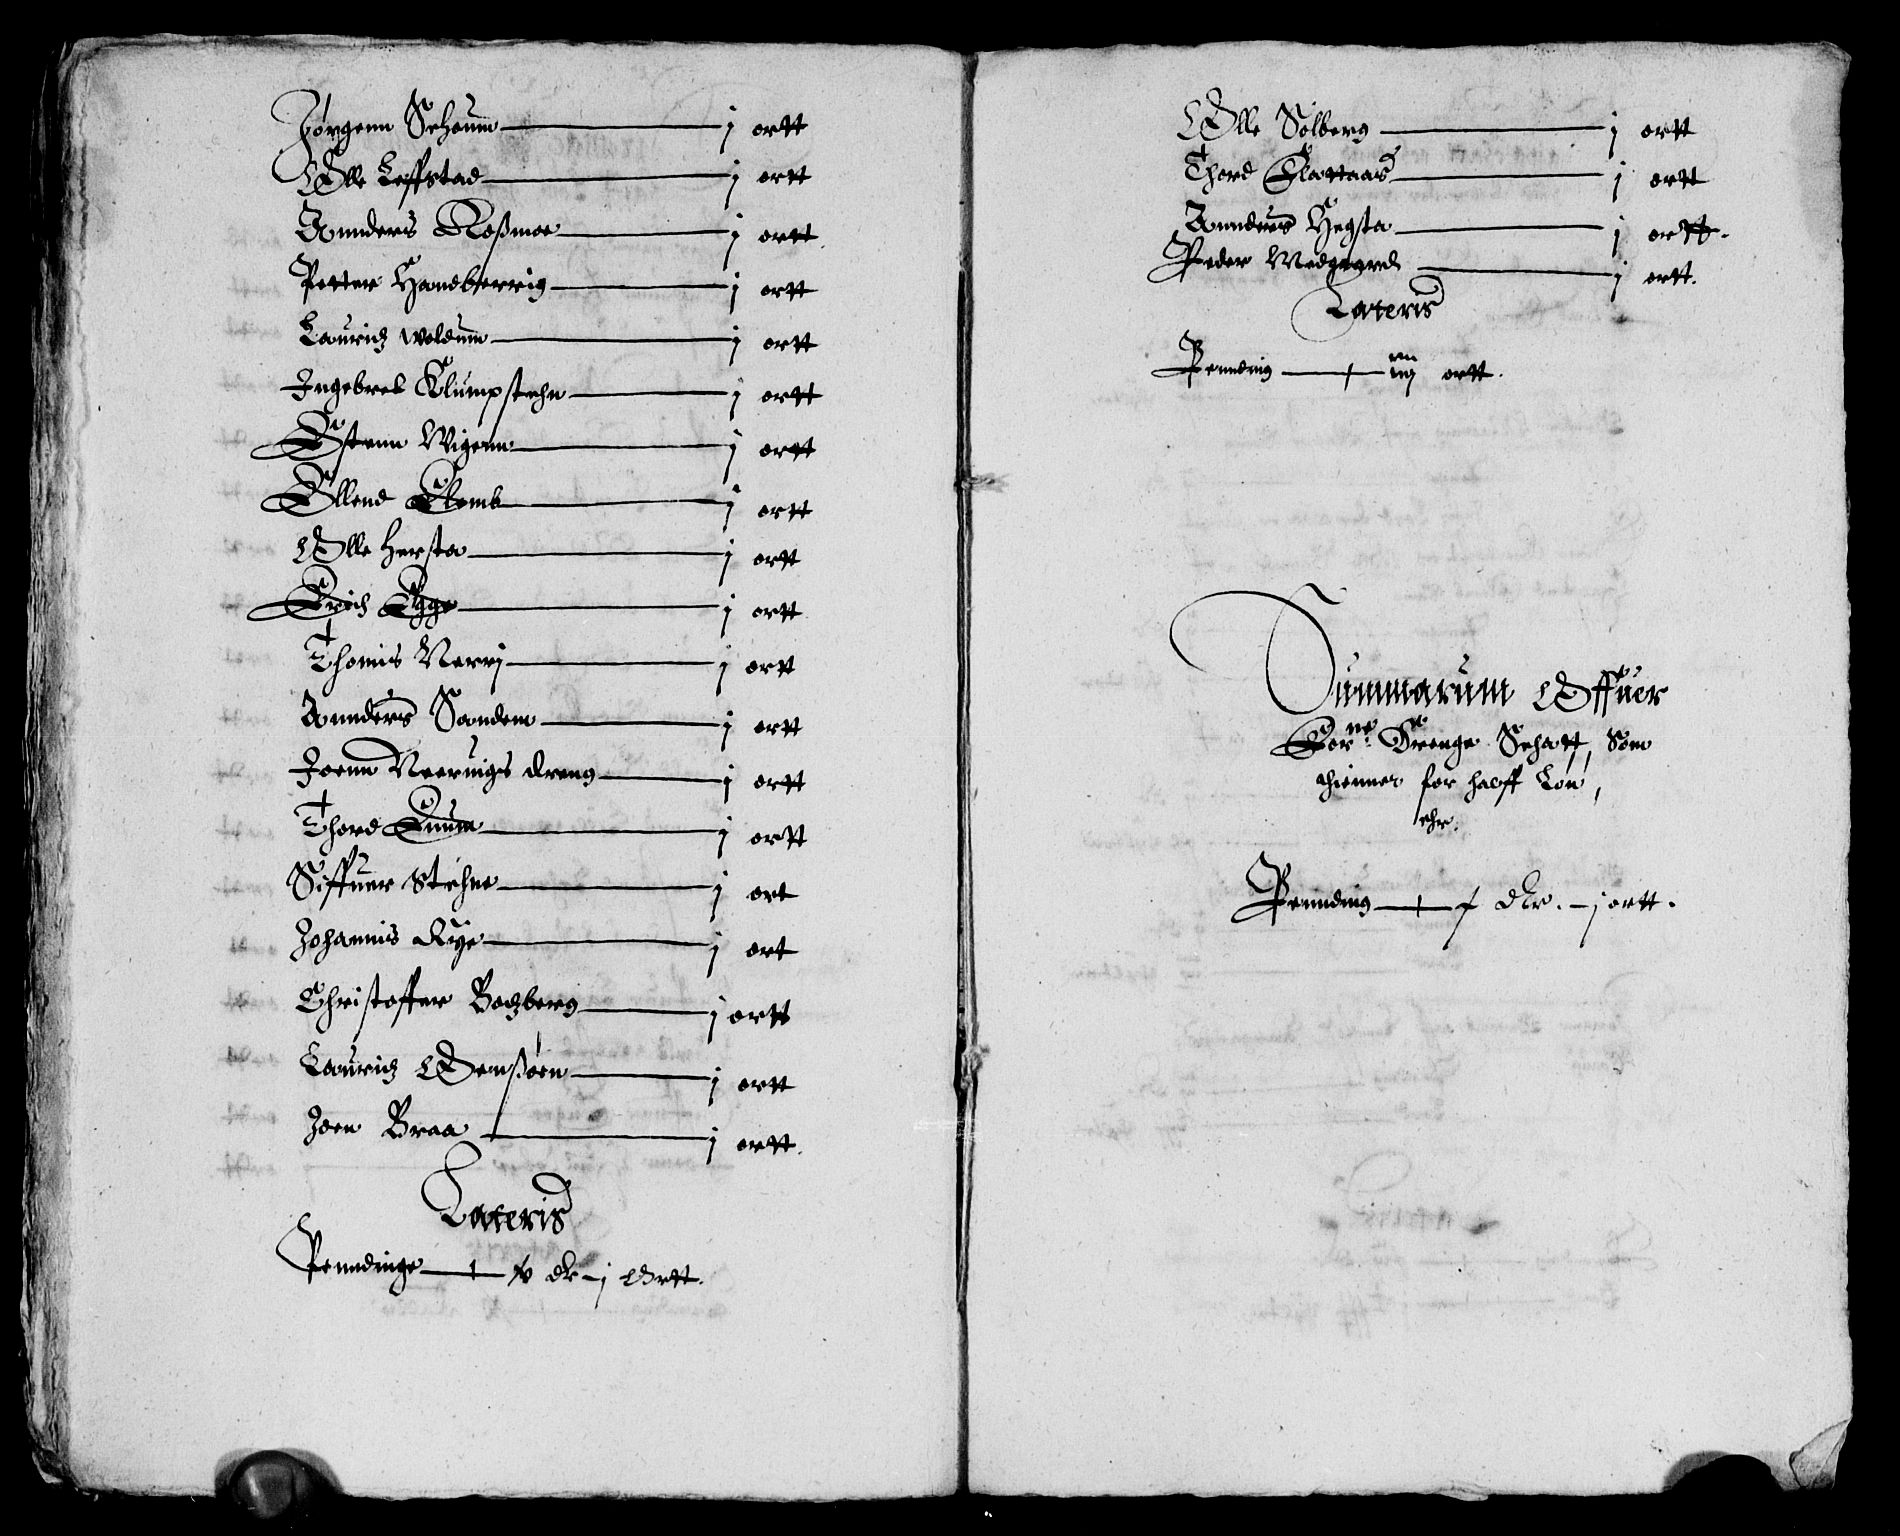 Jørgenn Schoum — j ortt
Olle Leffstad — j ortt
Annders Roßmoe — j ortt.
Petter Handberrig — j ortt
Lauridz Woldum — j ortt
Ingebret Klumpstehn — j ortt
Østenn Wigenn — j ortt
Ellend Klomb — j ortt
Olle Hersta — j ortt
Erich Egge — j ortt
Thomis Nerrj — j ortt
Annders Sandem — j ortt
Joenn Neernigs dreng — j ortt
Thord Quum — j ortt
Siffuer Stehne — j ort
Johannis Rye — j ort
Christoffer Bachberg — j ortt
Lauridz Oenßøen — j ortt
Joen Braa — j ortt.
Lateris
Penndinge — dlr – j Ortt.
Olle Solberg — j ortt
Thord Slattaas — j ortt
Annders Hegsta — j ortt.
Peder — j ortt.
Lateris
Pending — iiij ortt.
Summarum Offuer
Drenge Schatt, Som
thienner for halff Løn,
ehr.
Pennding — dlr. – j ortt.